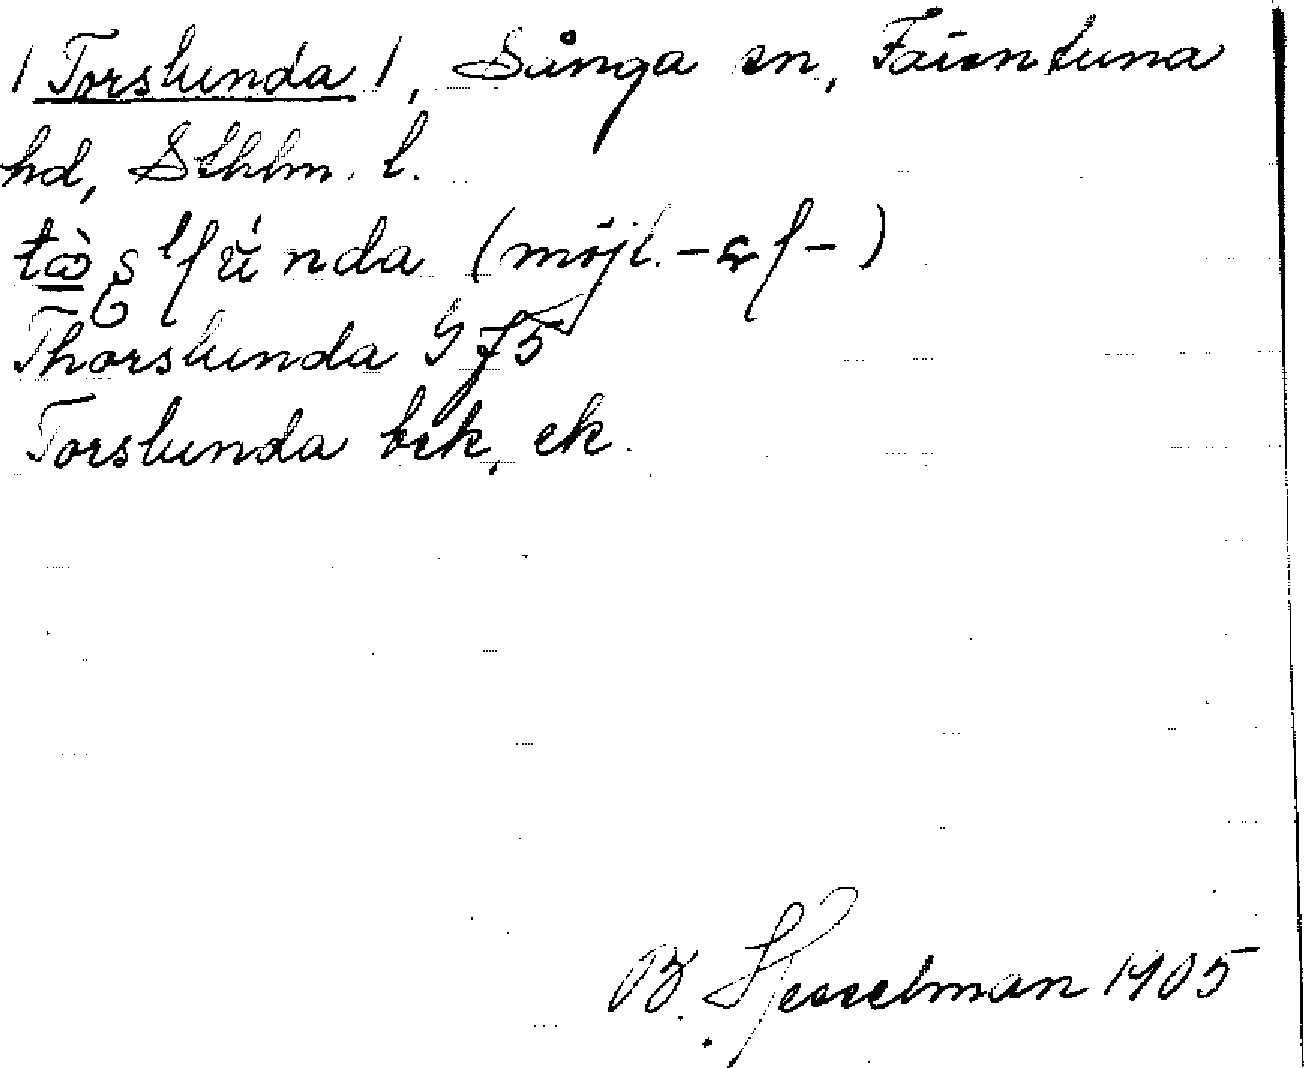 /Torslunda/, Sånga sn, Färentuna
hd, Sthlm. l.
(möjl.
Thorslunda G f5
Torslunda krk, ek.
B. Hesselman 1905